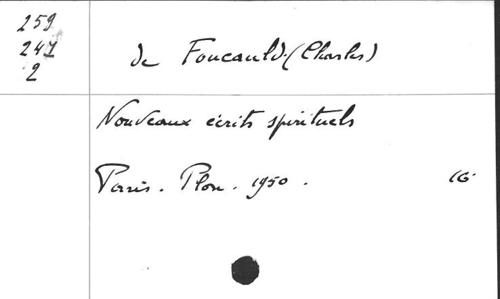 259
241
2
de Foucauld (Charles)
Nouveaux écrits spirituels
Paris. Plon. 1950. 16.